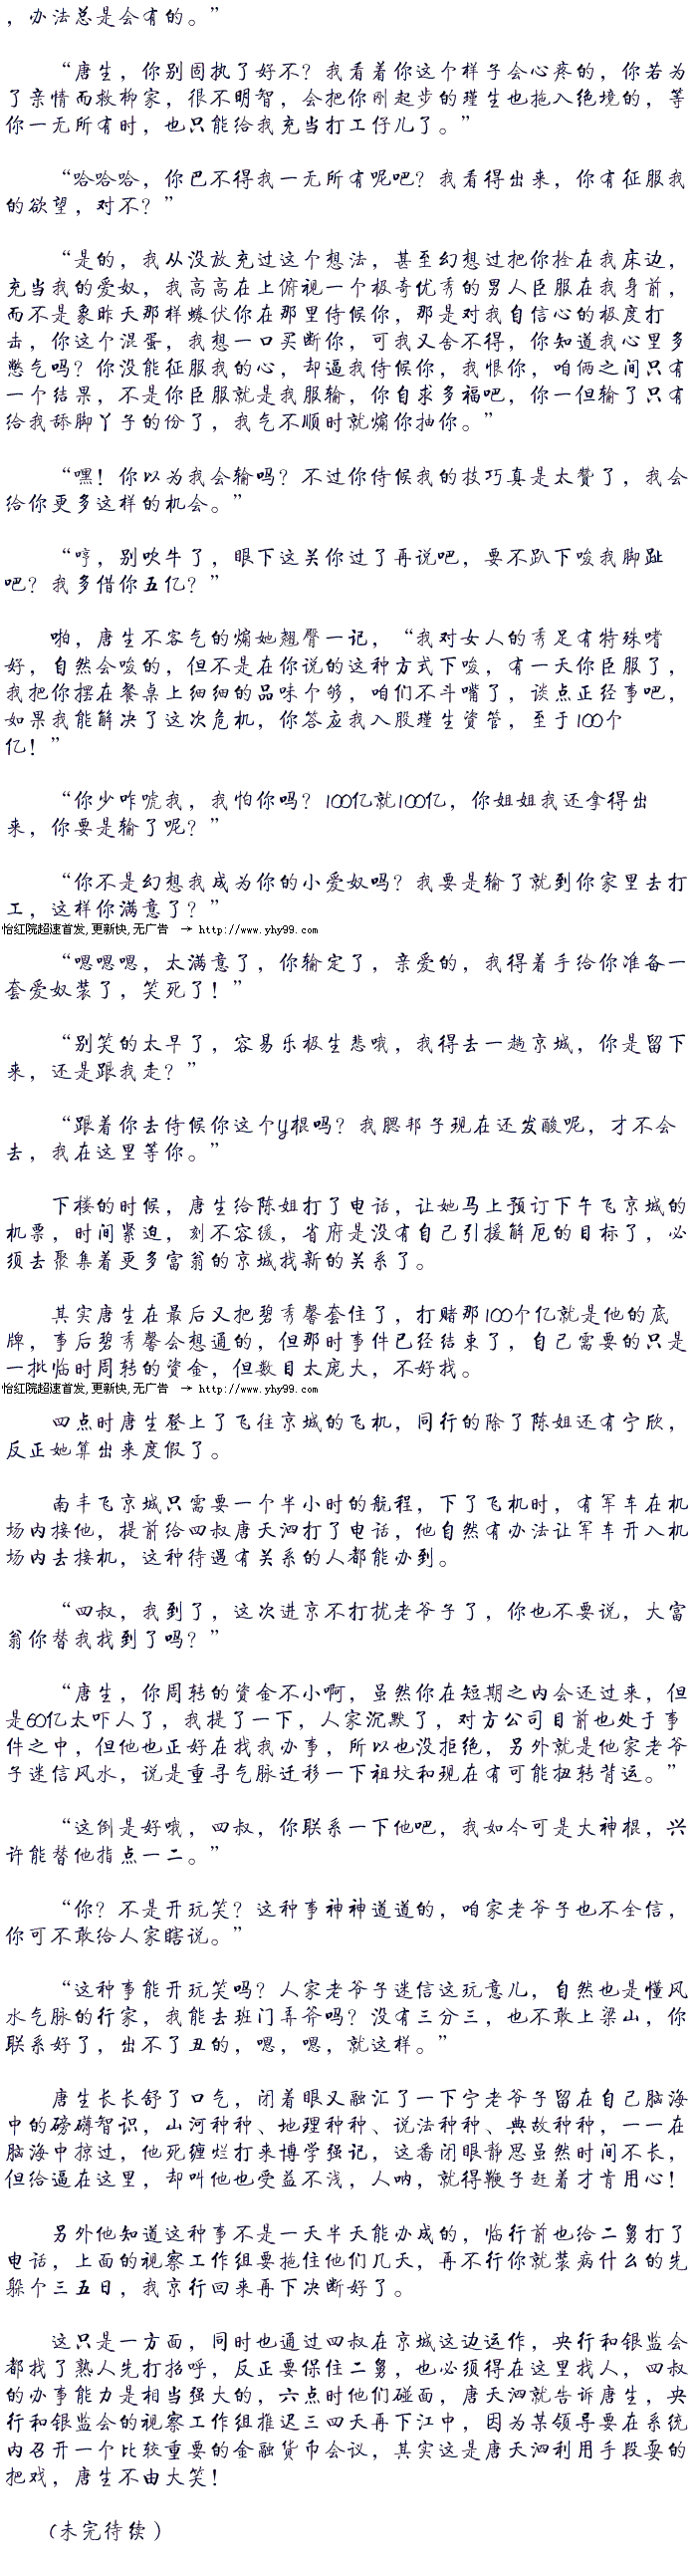 ，办法总是会有的。”
“唐生，你别固执了好不？我看着你这个样子会心疼的，你若为
了亲情而救柳家，很不明智，会把你刚起步的瑾生也拖入绝境的，等
你一无所有时，也只能给我充当打工仔儿了。”
“哈哈哈，你巴不得我一无所有呢吧？我看得出来，你有征服我
的欲望，对不？”
“是的，我从没放充过这个想法，甚至幻想过把你拴在我床边，
充当我的爱奴，我高高在上俯视一个极奇优秀的男人臣服在我身前，
而不是象昨天那样蜷伏你在那里侍候你，那是对我自信心的极度打
击，你这个混蛋，我想一口买断你，可我又舍不得，你知道我心里多
憋气吗？你没能征服我的心，却逼我侍候你，我恨你，咱俩之间只有
一个结果，不是你臣服就是我服输，你自求多福吧，你一但输了只有
给我舔脚丫子的份了，我气不顺时就煽你抽你。”
“嘿！你以为我会输吗？不过你侍候我的技巧真是太赞了，我会
给你更多这样的机会。”
“哼，别吹牛了，眼下这关你过了再说吧，要不趴下唆我脚趾
吧？我多借你五亿？”
啪，唐生不容气的煽她翘臀一记，“我对女人的秀足有特殊嗜
好，自然会唆的，但不是在你说的这种方式下唆，有一天你臣服了，
我把你摆在餐桌上细细的品味个够，咱们不斗嘴了，谈点正经事吧，
如果我能解决了这次危机，你答应我入股瑾生资管，至于100个
亿！”
“你少咋唬我，我怕你吗？100亿就100亿，你姐姐我还拿得出
来，你要是输了呢？”
“你不是幻想我成为你的小爱奴吗？我要是输了就到你家里去打
工，这样你满意了？”
怡红院超速首发,更新快,无广告　→ http://www.yhy99.com
“嗯嗯嗯，太满意了，你输定了，亲爱的，我得着手给你准备一
套爱奴装了，笑死了！”
“别笑的太早了，容易乐极生悲哦，我得去一趟京城，你是留下
来，还是跟我走？”
“跟着你去侍候你这个y棍吗？我腮邦子现在还发酸呢，才不会
去，我在这里等你。”
下楼的时候，唐生给陈姐打了电话，让她马上预订下午飞京城的
机票，时间紧迫，刻不容缓，省府是没有自己引援解厄的目标了，必
须去聚集着更多富翁的京城找新的关系了。
其实唐生在最后又把碧秀馨套住了，打赌那100个亿就是他的底
牌，事后碧秀馨会想通的，但那时事件已经结束了，自己需要的只是
一批临时周转的资金，但数目太庞大，不好找。
怡红院超速首发,更新快,无广告　→ http://www.yhy99.com
四点时唐生登上了飞往京城的飞机，同行的除了陈姐还有宁欣，
反正她算出来度假了。
南丰飞京城只需要一个半小时的航程，下了飞机时，有军车在机
场内接他，提前给四叔唐天泗打了电话，他自然有办法让军车开入机
场内去接机，这种待遇有关系的人都能办到。
“四叔，我到了，这次进京不打扰老爷子了，你也不要说，大富
翁你替我找到了吗？”
“唐生，你周转的资金不小啊，虽然你在短期之内会还过来，但
是60亿太吓人了，我提了一下，人家沉默了，对方公司目前也处于事
件之中，但他也正好在找我办事，所以也没拒绝，另外就是他家老爷
子迷信风水，说是重寻气脉迁移一下祖坟和现在有可能扭转背运。”
“这倒是好哦，四叔，你联系一下他吧，我如今可是大神棍，兴
许能替他指点一二。”
“你？不是开玩笑？这种事神神道道的，咱家老爷子也不全信，
你可不敢给人家瞎说。”
“这种事能开玩笑吗？人家老爷子迷信这玩意儿，自然也是懂风
水气脉的行家，我能去班门弄斧吗？没有三分三，也不敢上梁山，你
联系好了，出不了丑的，嗯，嗯，就这样。”
唐生长长舒了口气，闭着眼又融汇了一下宁老爷子留在自己脑海
中的磅礴智识，山河种种、地理种种、说法种种、典故种种，一一在
脑海中掠过，他死缠烂打来博学强记，这番闭眼静思虽然时间不长，
但给逼在这里，却叫他也受益不浅，人呐，就得鞭子赶着才肯用心！
另外他知道这种事不是一天半天能办成的，临行前也给二舅打了
电话，上面的视察工作组要拖住他们几天，再不行你就装病什么的先
躲个三五日，我京行回来再下决断好了。
这只是一方面，同时也通过四叔在京城这边运作，央行和银监会
都找了熟人先打招呼，反正要保住二舅，也必须得在这里找人，四叔
的办事能力是相当强大的，六点时他们碰面，唐天泗就告诉唐生，央
行和银监会的视察工作组推迟三四天再下江中，因为某领导要在系统
内召开一个比较重要的金融货币会议，其实这是唐天泗利用手段耍的
把戏，唐生不由大笑！
(未完待续）